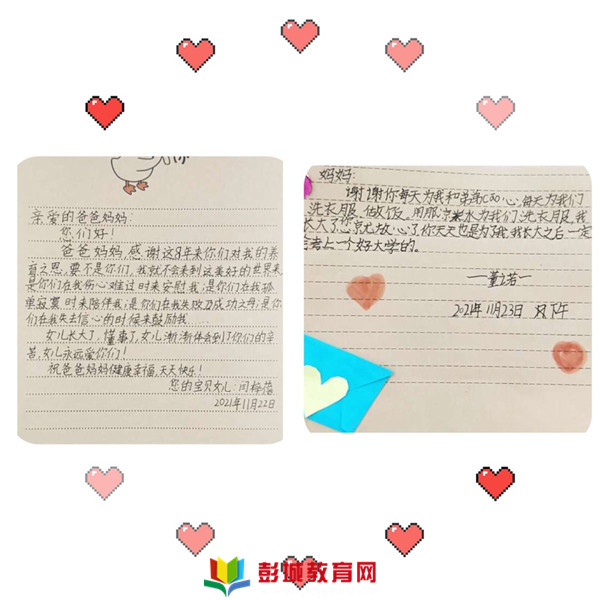 亲爱的爸爸妈妈:
您们好!
爸爸妈妈,感谢这8年来你们对我的养
育之恩,要不是你们,我就不会来到这美好的世界来
是你们在我伤心难过时来安慰我;是你们在我孤
单寂寞时来陪伴我;是你们在我失败乃成功之母;是你
们在我失去信心的时候来鼓励我
女儿长大了,懂事了,女儿渐渐体会到了你们的辛
苦,女儿永远爱你们!
祝爸爸妈妈健康幸福,天天快乐!
您的宝贝女儿:闫
2021年11月22日
妈妈:
谢谢你每天为我和弟弟cāo心,每天为我们
洗衣服、做饭。用那凉水为我们洗衣服,我
长大了您就放心了,你天天也是为了我,我长大之后一定
考上一个好大学的。
一诺
2021年11月23日 下午
彭城教育网